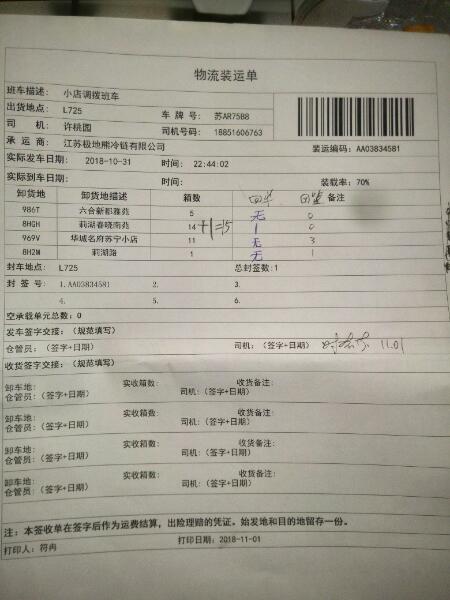 物流装运单
班车描述: 小店调拨班车
出货地点: L725 车 牌 号: 苏AR75B8
司 机: 许桃园 司机号码: 18851606763
承 运 商: 江苏极地熊冷链有限公司 装运编码: AA03834581
实际发车日期: 2018-10-31 时间: 22:44:02
实际到车日期: 时间: 装载率: 70%
卸货地 卸货地描述 箱数 回单 回筐 备注
986T 六合新都雅苑 5 无 0
8HGH 莉湖春晓南苑 14 +1=15 1 0
969V 华城名府苏宁小店 11 无 3
8H2M 莉湖路 1 无 1
封车地点: L725 总封签数:1
封 签 号: 1.AA03834581 2. 3.
4. 5. 6.
空承载单元总数: 0
发车签字交接: (规范填写)
仓管员: (签字+日期) 司机: (签字+日期) 11.01
收货签字交接: (规范填写)
卸车地: 实收箱数: 收货备注:
仓管员: (签字+日期) 司机: (签字+日期)
卸车地: 实收箱数: 收货备注:
仓管员: (签字+日期) 司机: (签字+日期)
卸车地: 实收箱数: 收货备注:
仓管员: (签字+日期) 司机: (签字+日期)
卸车地: 实收箱数: 收货备注:
仓管员: (签字+日期) 司机: (签字+日期)
注: 本签收单在签字后作为运费结算, 出险理赔的凭证。始发地和目的地留存一份。
打印人: 符冉 打印日期: 2018-11-01